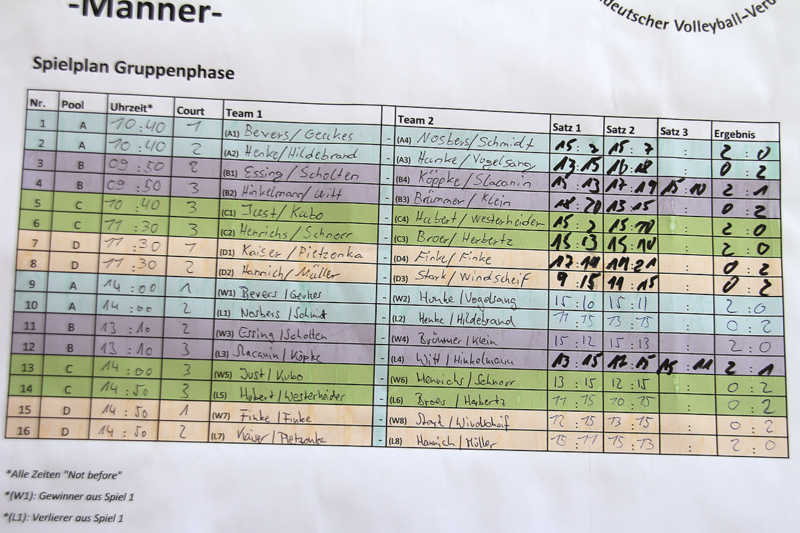 -Männer-
deutscher Volleyball-Verb
Spielplan Gruppenphase
Nr. Pool Uhrzeit* Court Team 1 - Team 2 Satz 1 Satz 2 Satz 3 Ergebnis
1 A 10:40 1 (A1) Bevers/Geukes - (A4) Nosbers/Schmidt 15: 15:7 : 2:0
2 A 10:40 2 (A2) Henke/Hildebrand - (A3) Hunke/Vogelsang 13:15 16:18 : 0:2
3 B 09:50 2 (B1) Essing/Scholten - (B4) Köppke/Slacanin 15:13 17:19 15:10 2:1
4 B 09:50 3 (B2) Hinkelmann/Witt - (B3) Brümmer/Klein 18:20 13:15 : 0:2
5 C 10:40 3 (C1) Just/Kubo - (C4) Hubert/Westerheider 15: 15:10 : 2:0
6 C 11:30 3 (C2) Henrichs/Schnorr - (C3) Broer/Herbertz 15:13 15:10 : 2:0
7 D 11:30 1 (D1) Kaiser/Pietzonka - (D4) Finke/Finke 17:19 19:21 : 0:2
8 D 11:30 2 (D2) Hannich/Müller - (D3) Stark/Windscheif 9:15 11:15 : 0:2
9 A 14:00 1 (W1) Bevers/Geukes - (W2) Hunke/Vogelsang 15:10 15:11 : 2:0
10 A 14:00 2 (L1) Nosbers/Schmidt - (L2) Henke/Hildebrand 11:15 13:15 : 0:2
11 B 13:10 2 (W3) Essing/Scholten - (W4) Brümmer/Klein 15:12 15:13 : 2:0
12 B 13:10 3 (L3) Slacanin/Köpke - (L4) Witt/Hinkelmann 13:15 17:15 15:11 2:1
13 C 14:00 3 (W5) Just/Kubo - (W6) Henrichs/Schnorr 13:15 12:15 : 0:2
14 C 14:50 3 (L5) Hubert/Westerheider - (L6) Broer/Herbertz 11:15 10:15 : 0:2
15 D 14:50 1 (W7) Finke/Finke - (W8) Stark/Windscheif 12:15 13:15 : 0:2
16 D 14:50 2 (L7) Kaiser/Pietzonka - (L8) Hannich/Müller 15:11 15:13 : 2:0
*Alle Zeiten "Not before"
*(W1): Gewinner aus Spiel 1
*(L1): Verlierer aus Spiel 1